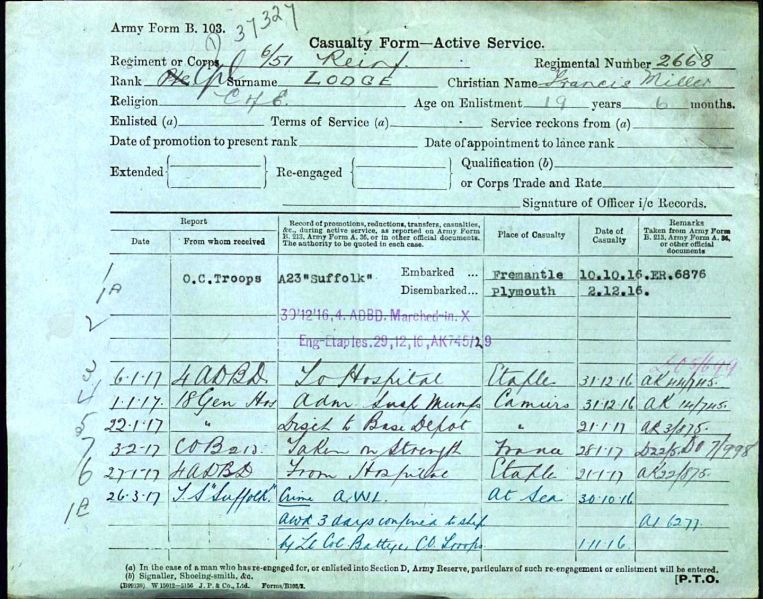 37327
Army Form B. 103.
Casualty Form—Active Service.
Regiment or Corps 6/51 Reinf Regimental Number 2668
Rank Pte Cpl Surname LODGE Christian Name Francis Miller
Religion C of E. Age on Enlistment 19 years 6 months.
Enlisted (a) Terms of Service (a) Service reckons from (a)
Date of promotion to present rank Date of appointment to lance rank
Extended Re-engaged Qualification (b)
or Corps Trade and Rate
Signature of Officer i/c Records.
Report
Date From whom received
Record of promotions, reductions, transfers, casualties, &c., during active service, as reported on Army Form B. 213, Army Form A. 36, or in other official documents. The authority to be quoted in each case.
Place of Casualty
Date of Casualty
Remarks
Taken from Army Form B. 213, Army Form A. 36, or other official documents
1 O.C.Troops A23"Suffolk" Embarked ... Fremantle 10.10.16. ER.6876
1A Disembarked... Plymouth 2.12.16.
2 30'12'16, 4. ADBD. Marched-in. X
Eng-Etaples. 29,12,16, AK745/19
3 6-1-17 4 ADBD To Hospital Etaples 31-12-16 AK44/745.
4 1-1-17. 18 Gen Hos Adm. Susp Mumps Camiers 31-12-16 AK 14/745.
5 22-1-17 " Disch to Base Depot " 21-1-17 AK3/875.
7 3-2-17 CO B213. Taken on Strength France 28-1-17 DO 7/998
6 27-1-17 4 ADBD From Hospital Etaples 21-1-17 AK22/875.
1B 26-3-17 T.S "Suffolk" Crime A.W.L. At Sea 30-10-16
Awd 3 days confined to ship A1 6277.
by Lt Col Battye C.O. Troops 1-11-16.
(a) In the case of a man who has re-engaged for, or enlisted into Section D, Army Reserve, particulars of such re-engagement or enlistment will be entered.
(b) Signaller, Shoeing-smith, &c.
(B99138) W 15012—5156 J. P. & Co., Ltd. Forms/B103/3. [P.T.O.